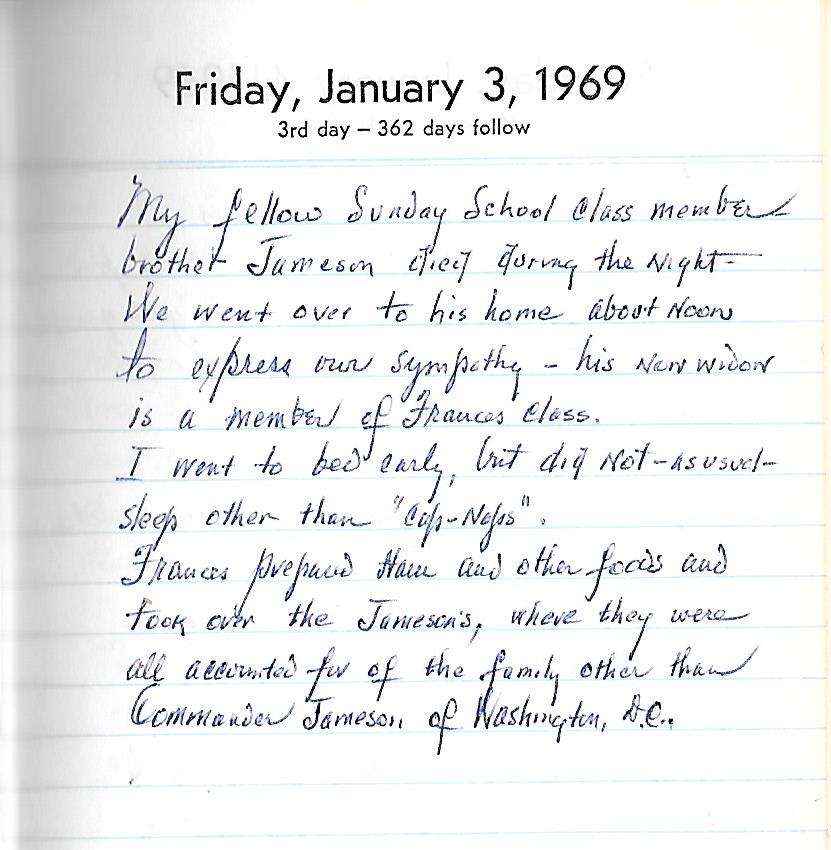 Friday, January 3, 1969
3rd day – 362 days follow
My fellow Sunday School Class member
brother Jameson died during the Night –
We went over to his home about Noon
to express our sympathy – his New widow
is a member of Frances Class.
I went to bed early, but did Not – as usual –
sleep other than "Cap-Naps".
Frances prepared Ham and other foods and
took over the Jameson's, where they were
all accounted for of the family other than
Commander Jameson of Washington, D.C..